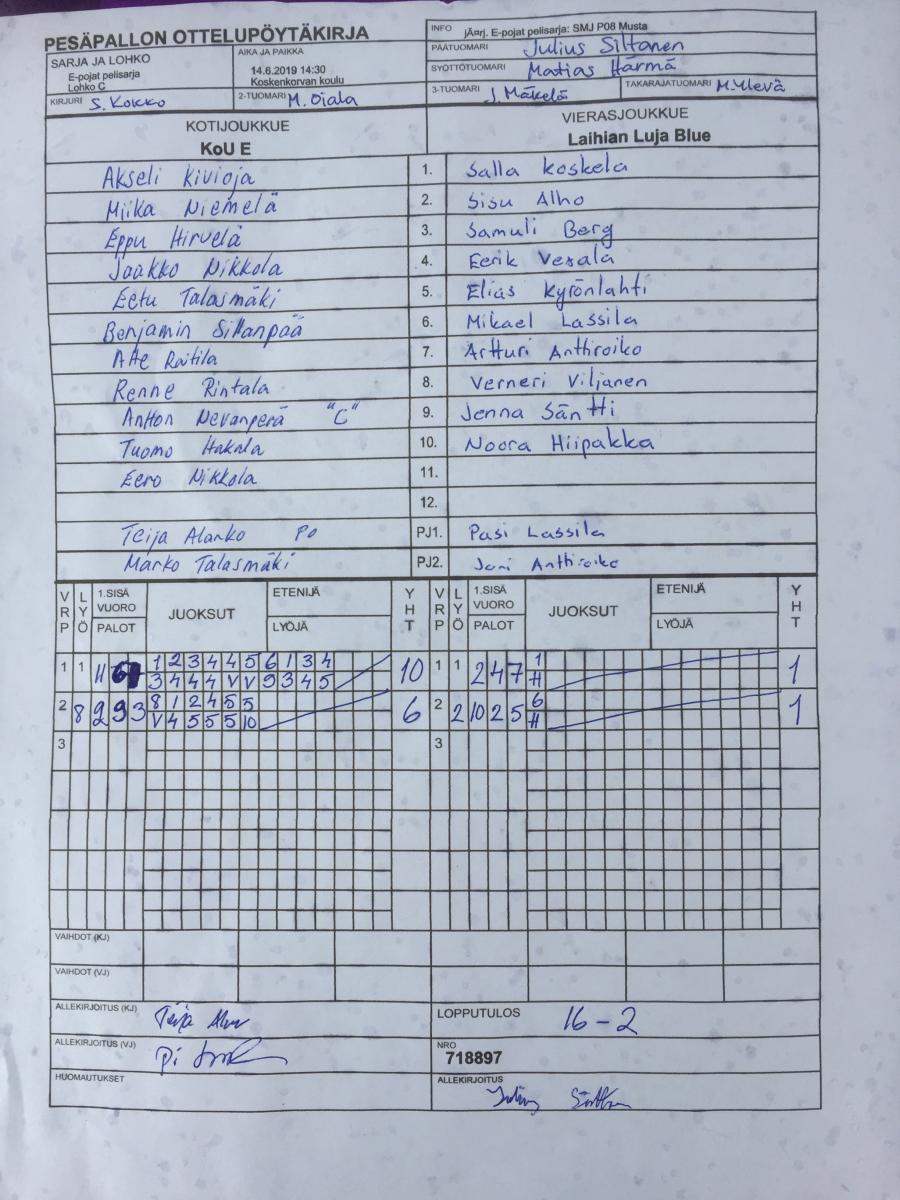 PESÄPALLON OTTELUPÖYTÄKIRJA
INFO jÄärj. E-pojat pelisarja: SMJ P08 Musta
SARJA JA LOHKO
E-pojat pelisarja
Lohko C
AIKA JA PAIKKA
14.6.2019 14:30
Koskenkorvan koulu
PÄÄTUOMARI Julius Siltanen
SYÖTTÖTUOMARI Matias Härmä
KIRJURI S. Kokko
2-TUOMARI M. Ojala
3-TUOMARI J. Mäkelä
TAKARAJATUOMARI M. Ylevä
KOTIJOUKKUE
KoU E
VIERASJOUKKUE
Laihian Luja Blue
Akseli Kivioja 1. Salla Koskela
Miika Niemelä 2. Sisu Alho
Eppu Hirvelä 3. Samuli Berg
Jaakko Nikkola 4. Eerik Vesala
Eetu Talasmäki 5. Elias Kyrönlahti
Benjamin Sillanpää 6. Mikael Lassila
Atte Raitila 7. Artturi Anthiroiko
Renne Rintala 8. Verneri Viljanen
Antton Nevanperä "C" 9. Jenna Säntti
Tuomo Hakala 10. Noora Hiipakka
Eero Nikkola 11.
12.
Teija Alanko PO PJ1. Pasi Lassila
Marko Talasmäki PJ2. Joni Anthiroiko
VRP LYÖ 1.SISÄ VUORO PALOT JUOKSUT ETENIJÄ LYÖJÄ YHT VRP LYÖ 1.SISÄ VUORO PALOT JUOKSUT ETENIJÄ LYÖJÄ YHT
1 1 11 1 2 3 4 4 5 6 1 3 4 10 1 1 2 4 7 1 1
3 4 4 4 V V 9 3 4 5 H
2 8 2 9 3 8 1 2 4 5 5 6 2 2 10 2 5 6 1
V 4 5 5 5 10 H
3 3
VAIHDOT (KJ)
VAIHDOT (VJ)
ALLEKIRJOITUS (KJ) Teija
LOPPUTULOS 16-2
ALLEKIRJOITUS (VJ)
NRO
718897
HUOMAUTUKSET
ALLEKIRJOITUS